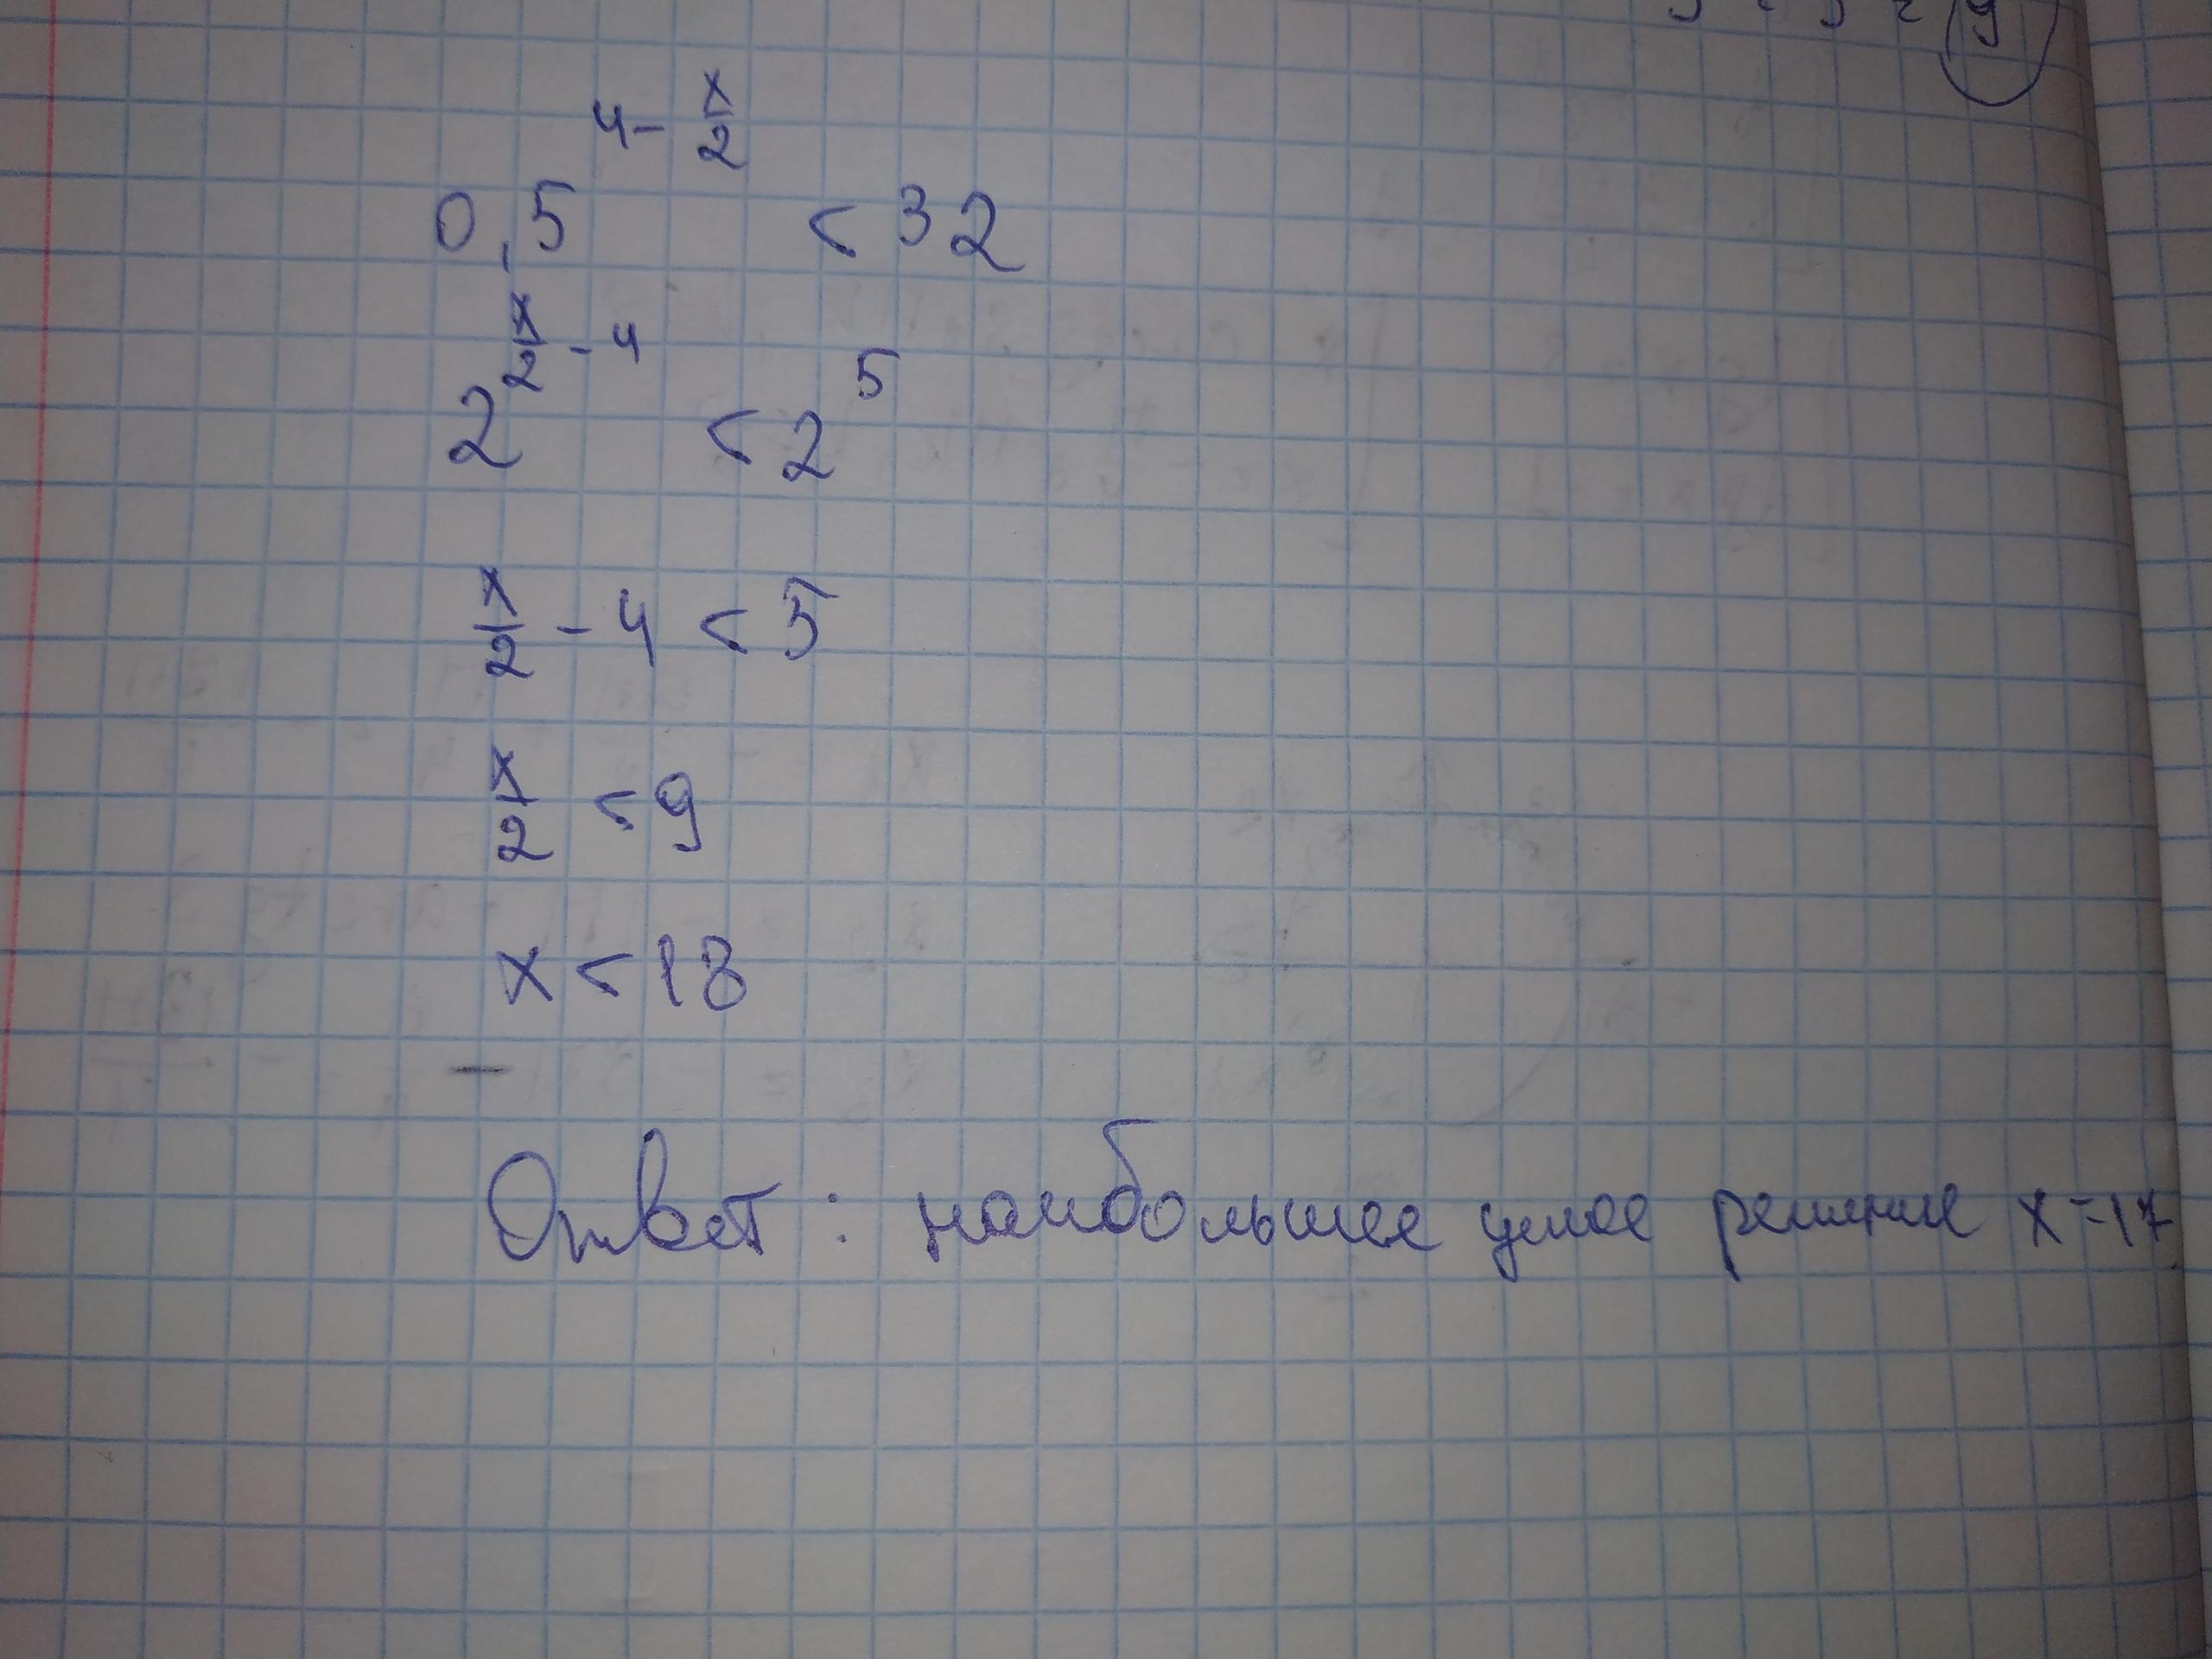 0,5^(4 - x/2) < 32
2^(x/2 - 4) < 2^5
x/2 - 4 < 5
x/2 < 9
x < 18
Ответ: наибольшее целое решение x = 17